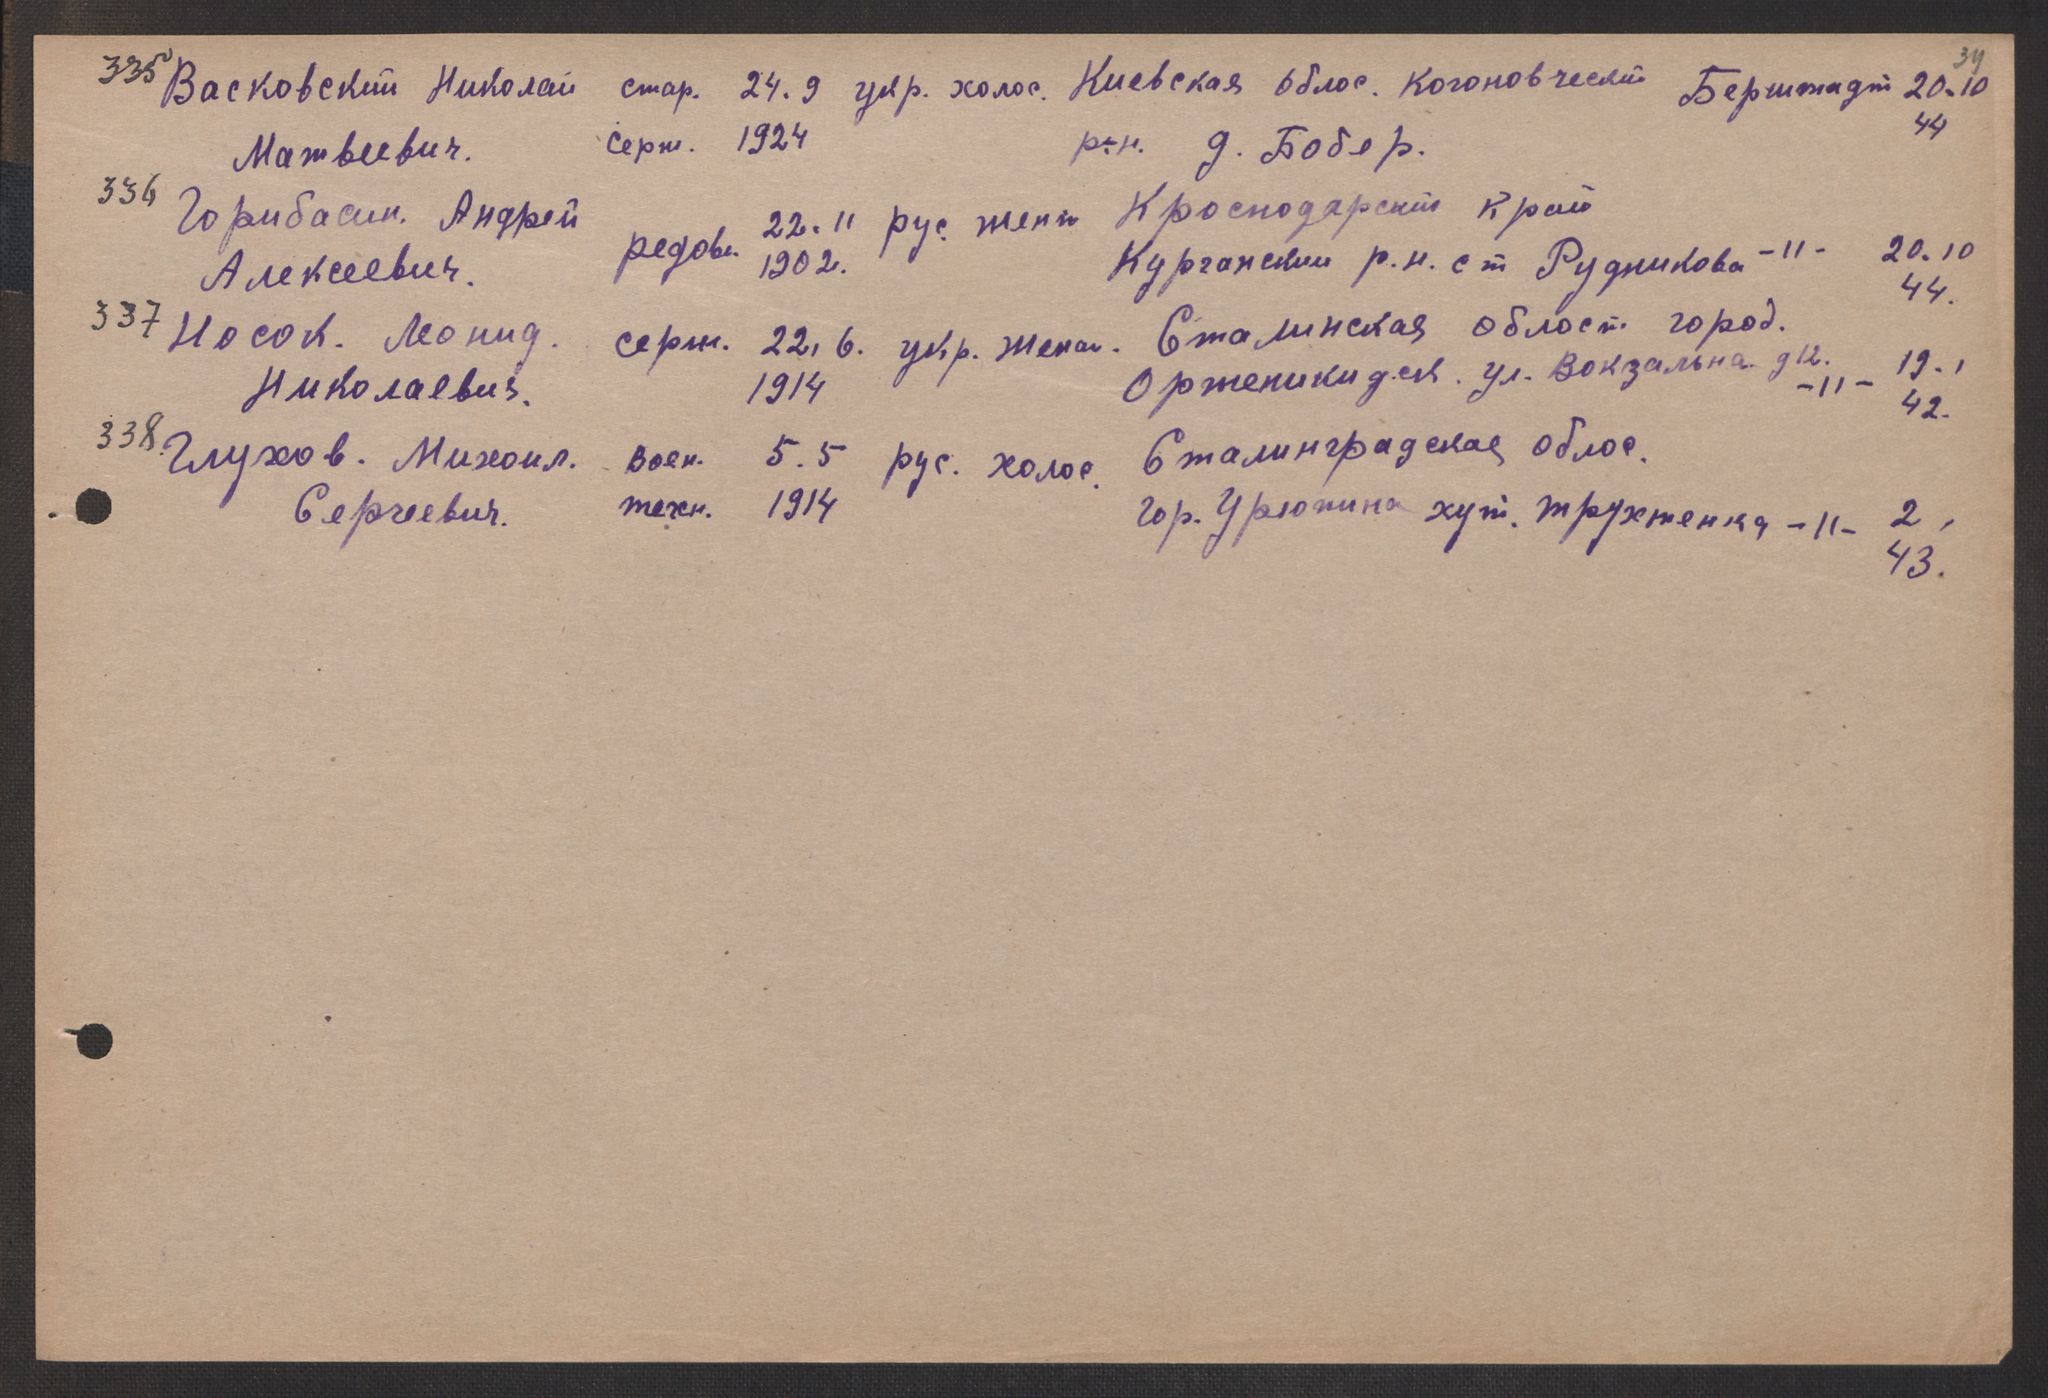 34
335 Васковский Николай стар. 24.9 укр. холос. Киевская облос. Когоновический Берштадт 20.10
Матвеевич. серж. 1924 р-н. д. Бобер. 44
336 Горибасин. Андрей 22.11 рус. жена Кроснодарский край
Алексеевич. редов. 1902. Курганский р.н. ст Рудникова -11- 20.10
44.
337 Носок. Леонид. серж. 22.6. укр. женат. Сталинская област. город.
Николаевич. 1914 Орженикидск. ул. Вокзальна. д 12. -11- 19.1
42.
338. Глухов. Михоил. воен. 5.5 рус. холос. Сталинградская облос.
Сергеевич. техн. 1914 гор. Урюпина хут. -11- 2.
43.